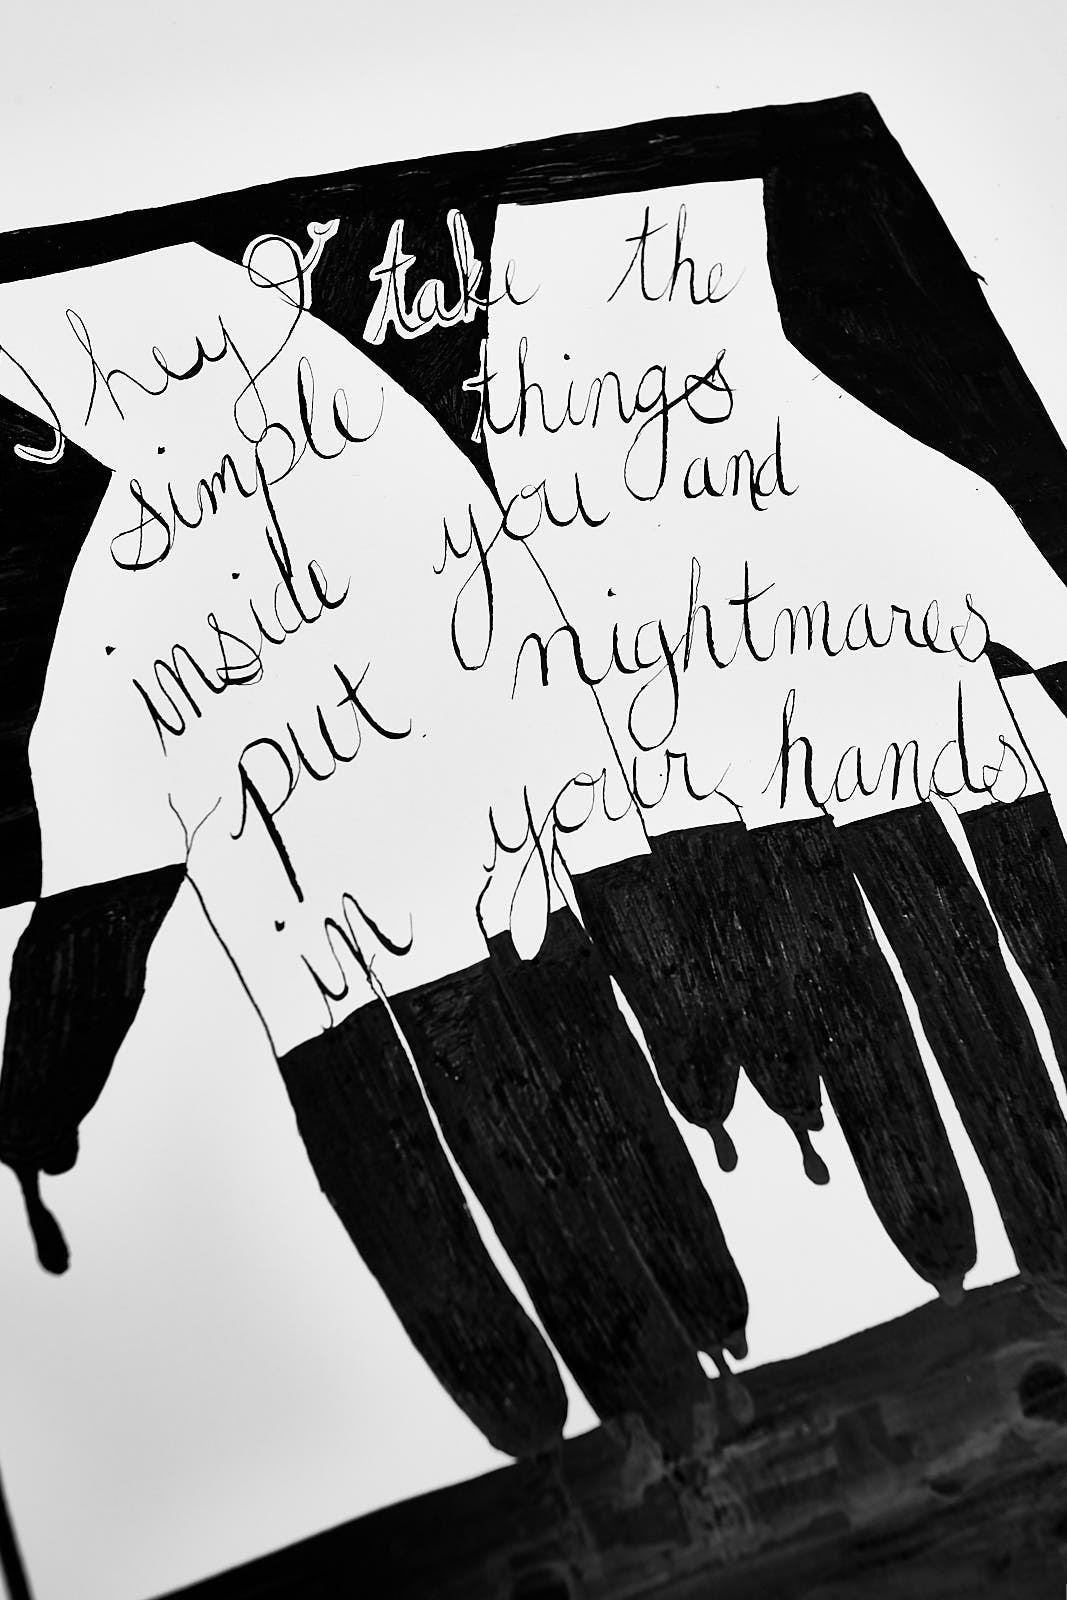 They take the
simple things
inside you and
put nightmares
in your hands